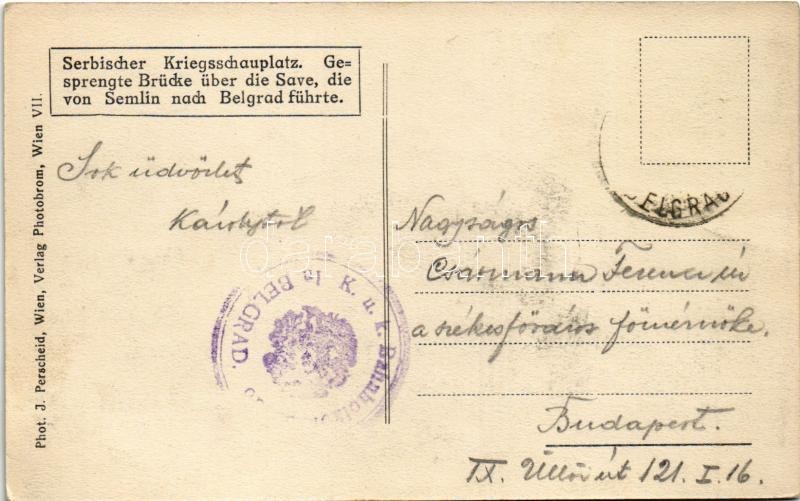 Serbischer Kriegsschauplatz. Ge-
sprengte Brücke über die Save, die
von Semlin nach Belgrad führte.
Phot. J. Perscheid, Wien, Verlag Photobrom, Wien VII.
Sok üdvözlet
Károlytól
K. u. k. Bahnhof
in BELGRAD.
BELGRAD
Nagyságos
Ferenc úr
a székesfőváros főmérnöke.
Budapest.
IX. Üllői út 121. I. 16.
darabanth